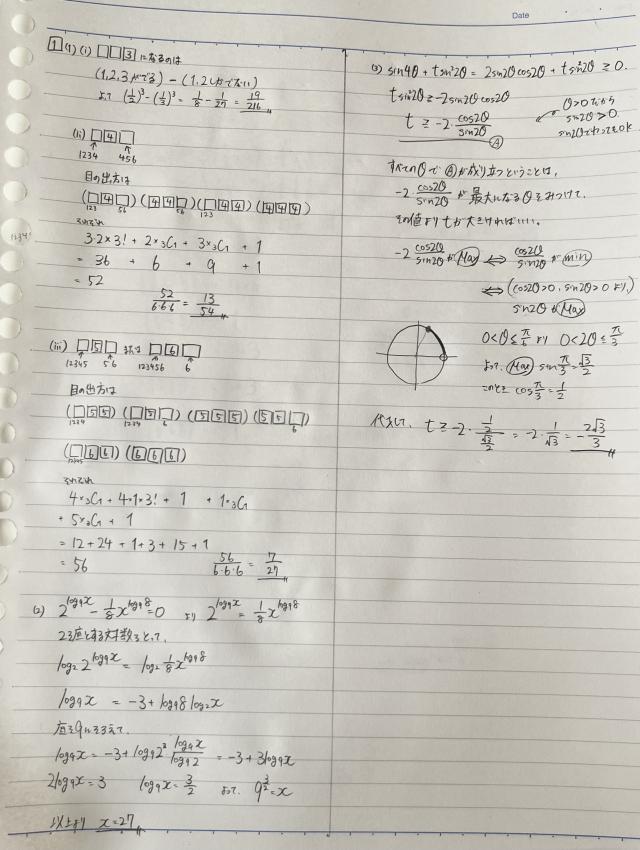 Date
1 (1) (i) □ □ 3 になるのは
(1,2,3が出る) - (1,2しかでない)
よって (1/2)³ - (1/3)³ = 1/8 - 1/27 = 19/216
(ii) □ 4 □
1234 456
目の出方は
(□ 4 □) (4 4 □) (□ 4 4) (4 4 4)
123 56 56 123
それぞれ
3・2×3! + 2×₃C₁ + 3×₃C₁ + 1
= 36 + 6 + 9 + 1
= 52
52/6・6・6 = 13/54
(iii) □ 5 □ または □ 6 □
12345 56 123456 6
目の出方は
(□ 5 5) (□ 5 □) (5 5 5) (5 5 □)
1234 1234 6 6
(□ 6 6) (6 6 6)
12345
それぞれ
4×₃C₁ + 4×1×3! + 1 + 1×₃C₁
+ 5×₃C₁ + 1
= 12 + 24 + 1 + 3 + 15 + 1
= 56 56/6・6・6 = 7/27
(2) 2^{log₉x} - 1/8 x^{log₉8} = 0 より 2^{log₉x} = 1/8 x^{log₉8}
2を底とする対数をとって、
log₂ 2^{log₉x} = log₂ 1/8 x^{log₉8}
log₉x = -3 + log₉8 log₂x
底を9にそろえて、
log₉x = -3 + log₉2³ log₉x/log₉2 = -3 + 3log₉x
2log₉x = 3 log₉x = 3/2 よって、 9^{3/2} = x
以上より x = 27
(3) sin4θ + tsin²2θ = 2sin2θcos2θ + tsin²2θ ≧ 0.
tsin²2θ ≧ -2sin2θcos2θ
t ≧ -2・cos2θ/sin2θ
Ⓐ
θ>0だから
sin2θ>0.
sin2θでわってもOK
すべてのθでⒶが成り立つということは、
-2・cos2θ/sin2θ が最大になるθをみつけて、
その値よりtが大きければいい。
-2 cos2θ/sin2θ が Max ⟺ cos2θ/sin2θ が min
⟺ (cos2θ>0, sin2θ>0 より)
sin2θ が Max
0<θ≦π/6 より 0<2θ≦π/3
よって、 Max sin π/3 = √3/2
このとき cos π/3 = 1/2
代入して、 t ≧ -2・(1/2)/(√3/2) = -2・1/√3 = -2√3/3